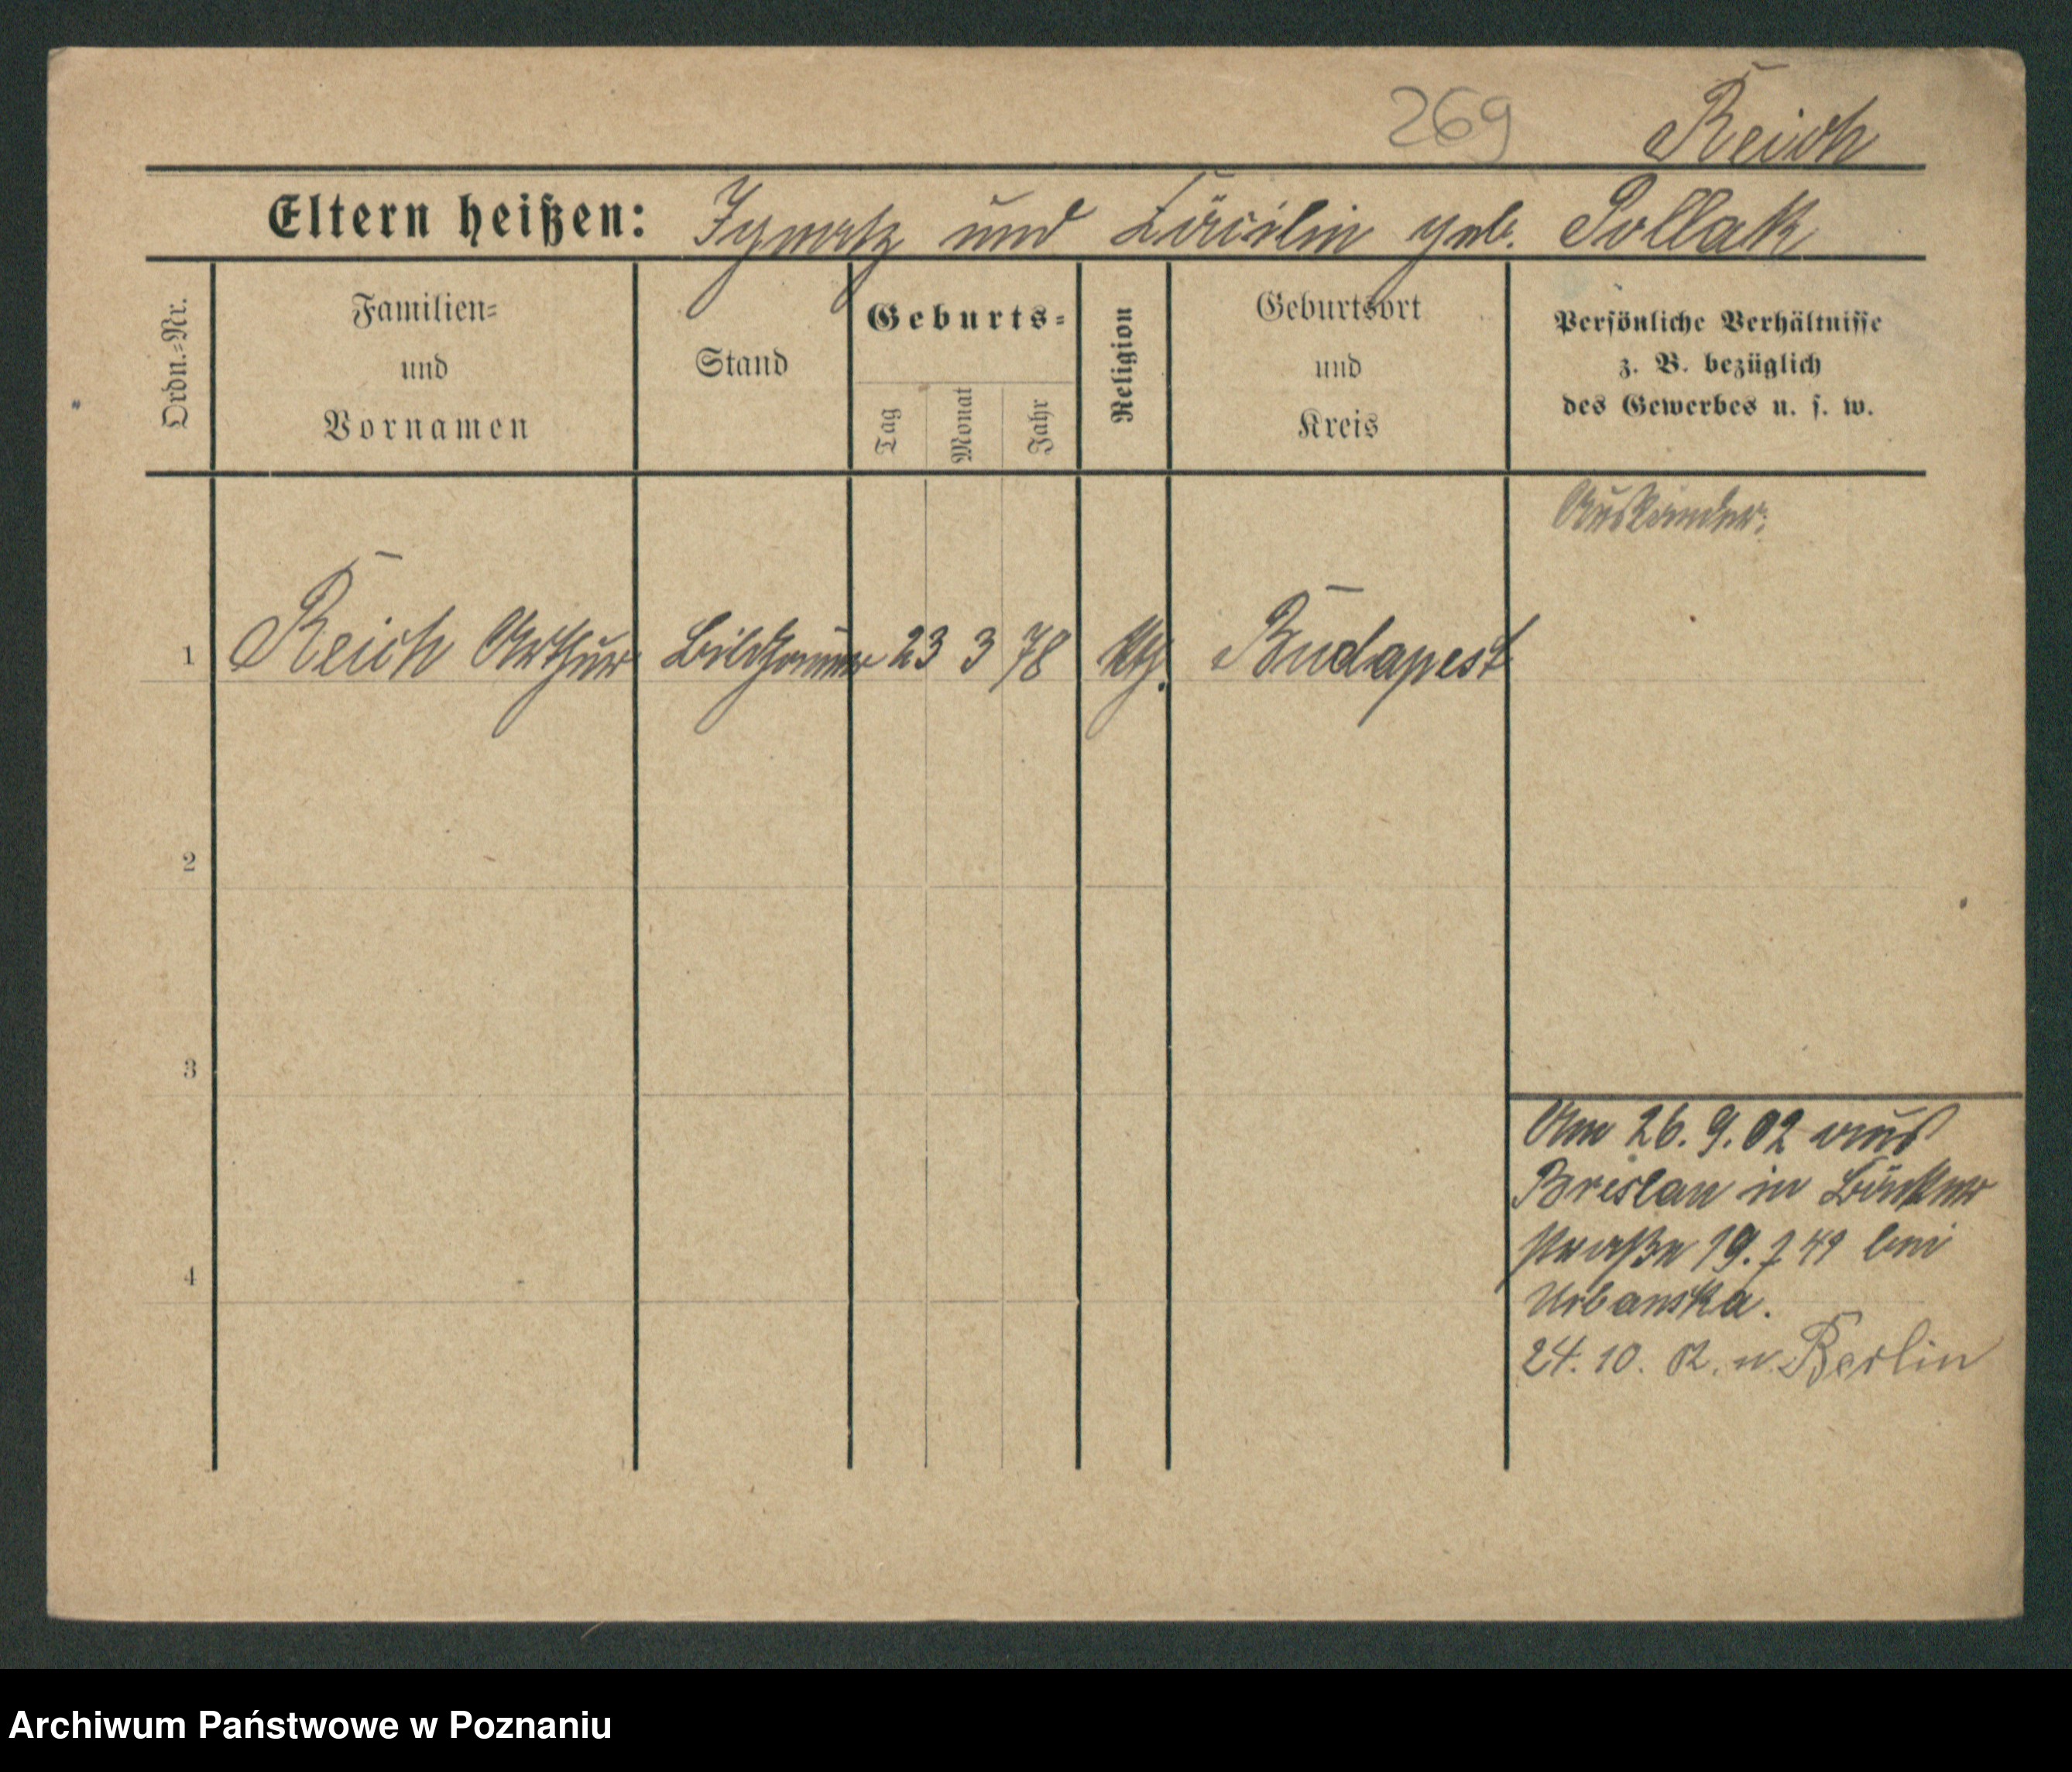 269 Reich
Eltern heißen: Ignatz und Cäcilie geb. Pollak
Ordn.-Nr.
Familien-
und
Vornamen
Stand
Geburts-
Tag
Monat
Jahr
Religion
Geburtsort
und
Kreis
Persönliche Verhältnisse
z. B. bezüglich
des Gewerbes u. s. w.
Ausländer.
1 Reich Arthur Bildhauer 23 3 78 Budapest
2
3
4
Am 26. 9. 02 aus
Breslau in Bäcker
straße 19. bei
Urbanska.
24. 10. 02. n. Berlin
Archiwum Państwowe w Poznaniu